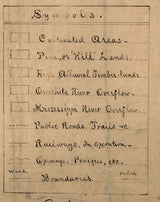 Symbols.
Cultivated Areas.
Pine, or Hill Lands.
High Alluvial Timber-lands.
Ouachita River Overflow.
Mississippi River Overflow.
Public Roads, Trails
Railways, in Operation.
Openings, Prairies, etc.
Boundaries.